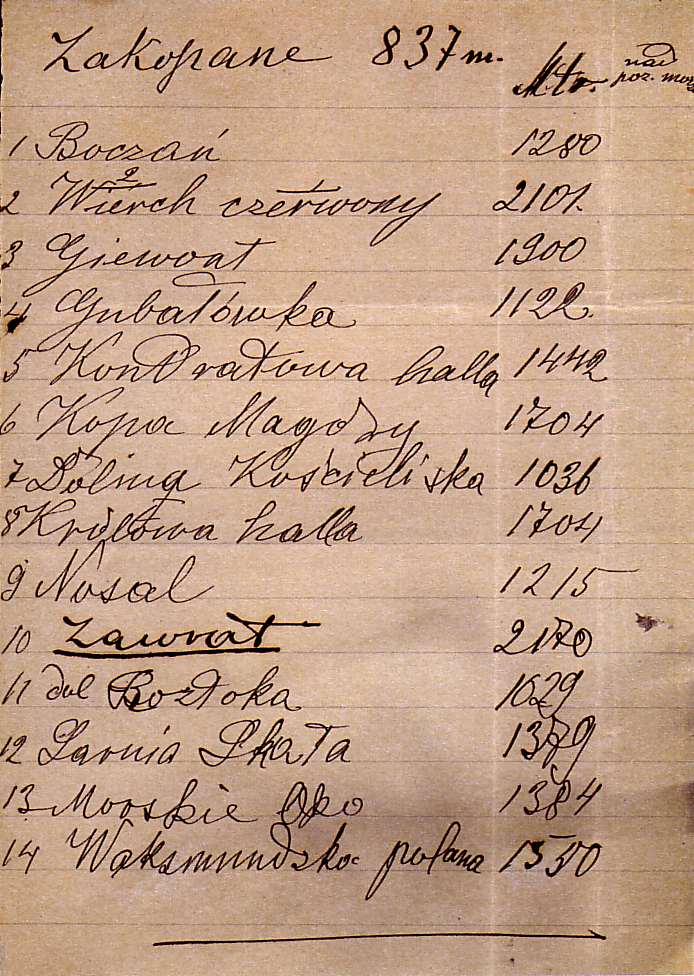 Zakopane 837 m.
Mtr. nad
poz. morz
1 Boczań 1280
2 Wierch czerwony 2101.
3 Giewont 1900
4 Gubałówka 1122.
5 Kondratowa halla 1442
6 Kopa Magdzy 1704
7 Dolina Kościeliska 1036
8 Królowa halla 1704
9 Nosal 1215
10 Zawrat 2170
11 dol Roztoka 1029
12 Sarnia Skała 1379
13 Morskie Oko 1384
14 Waksmundzka polana 1550